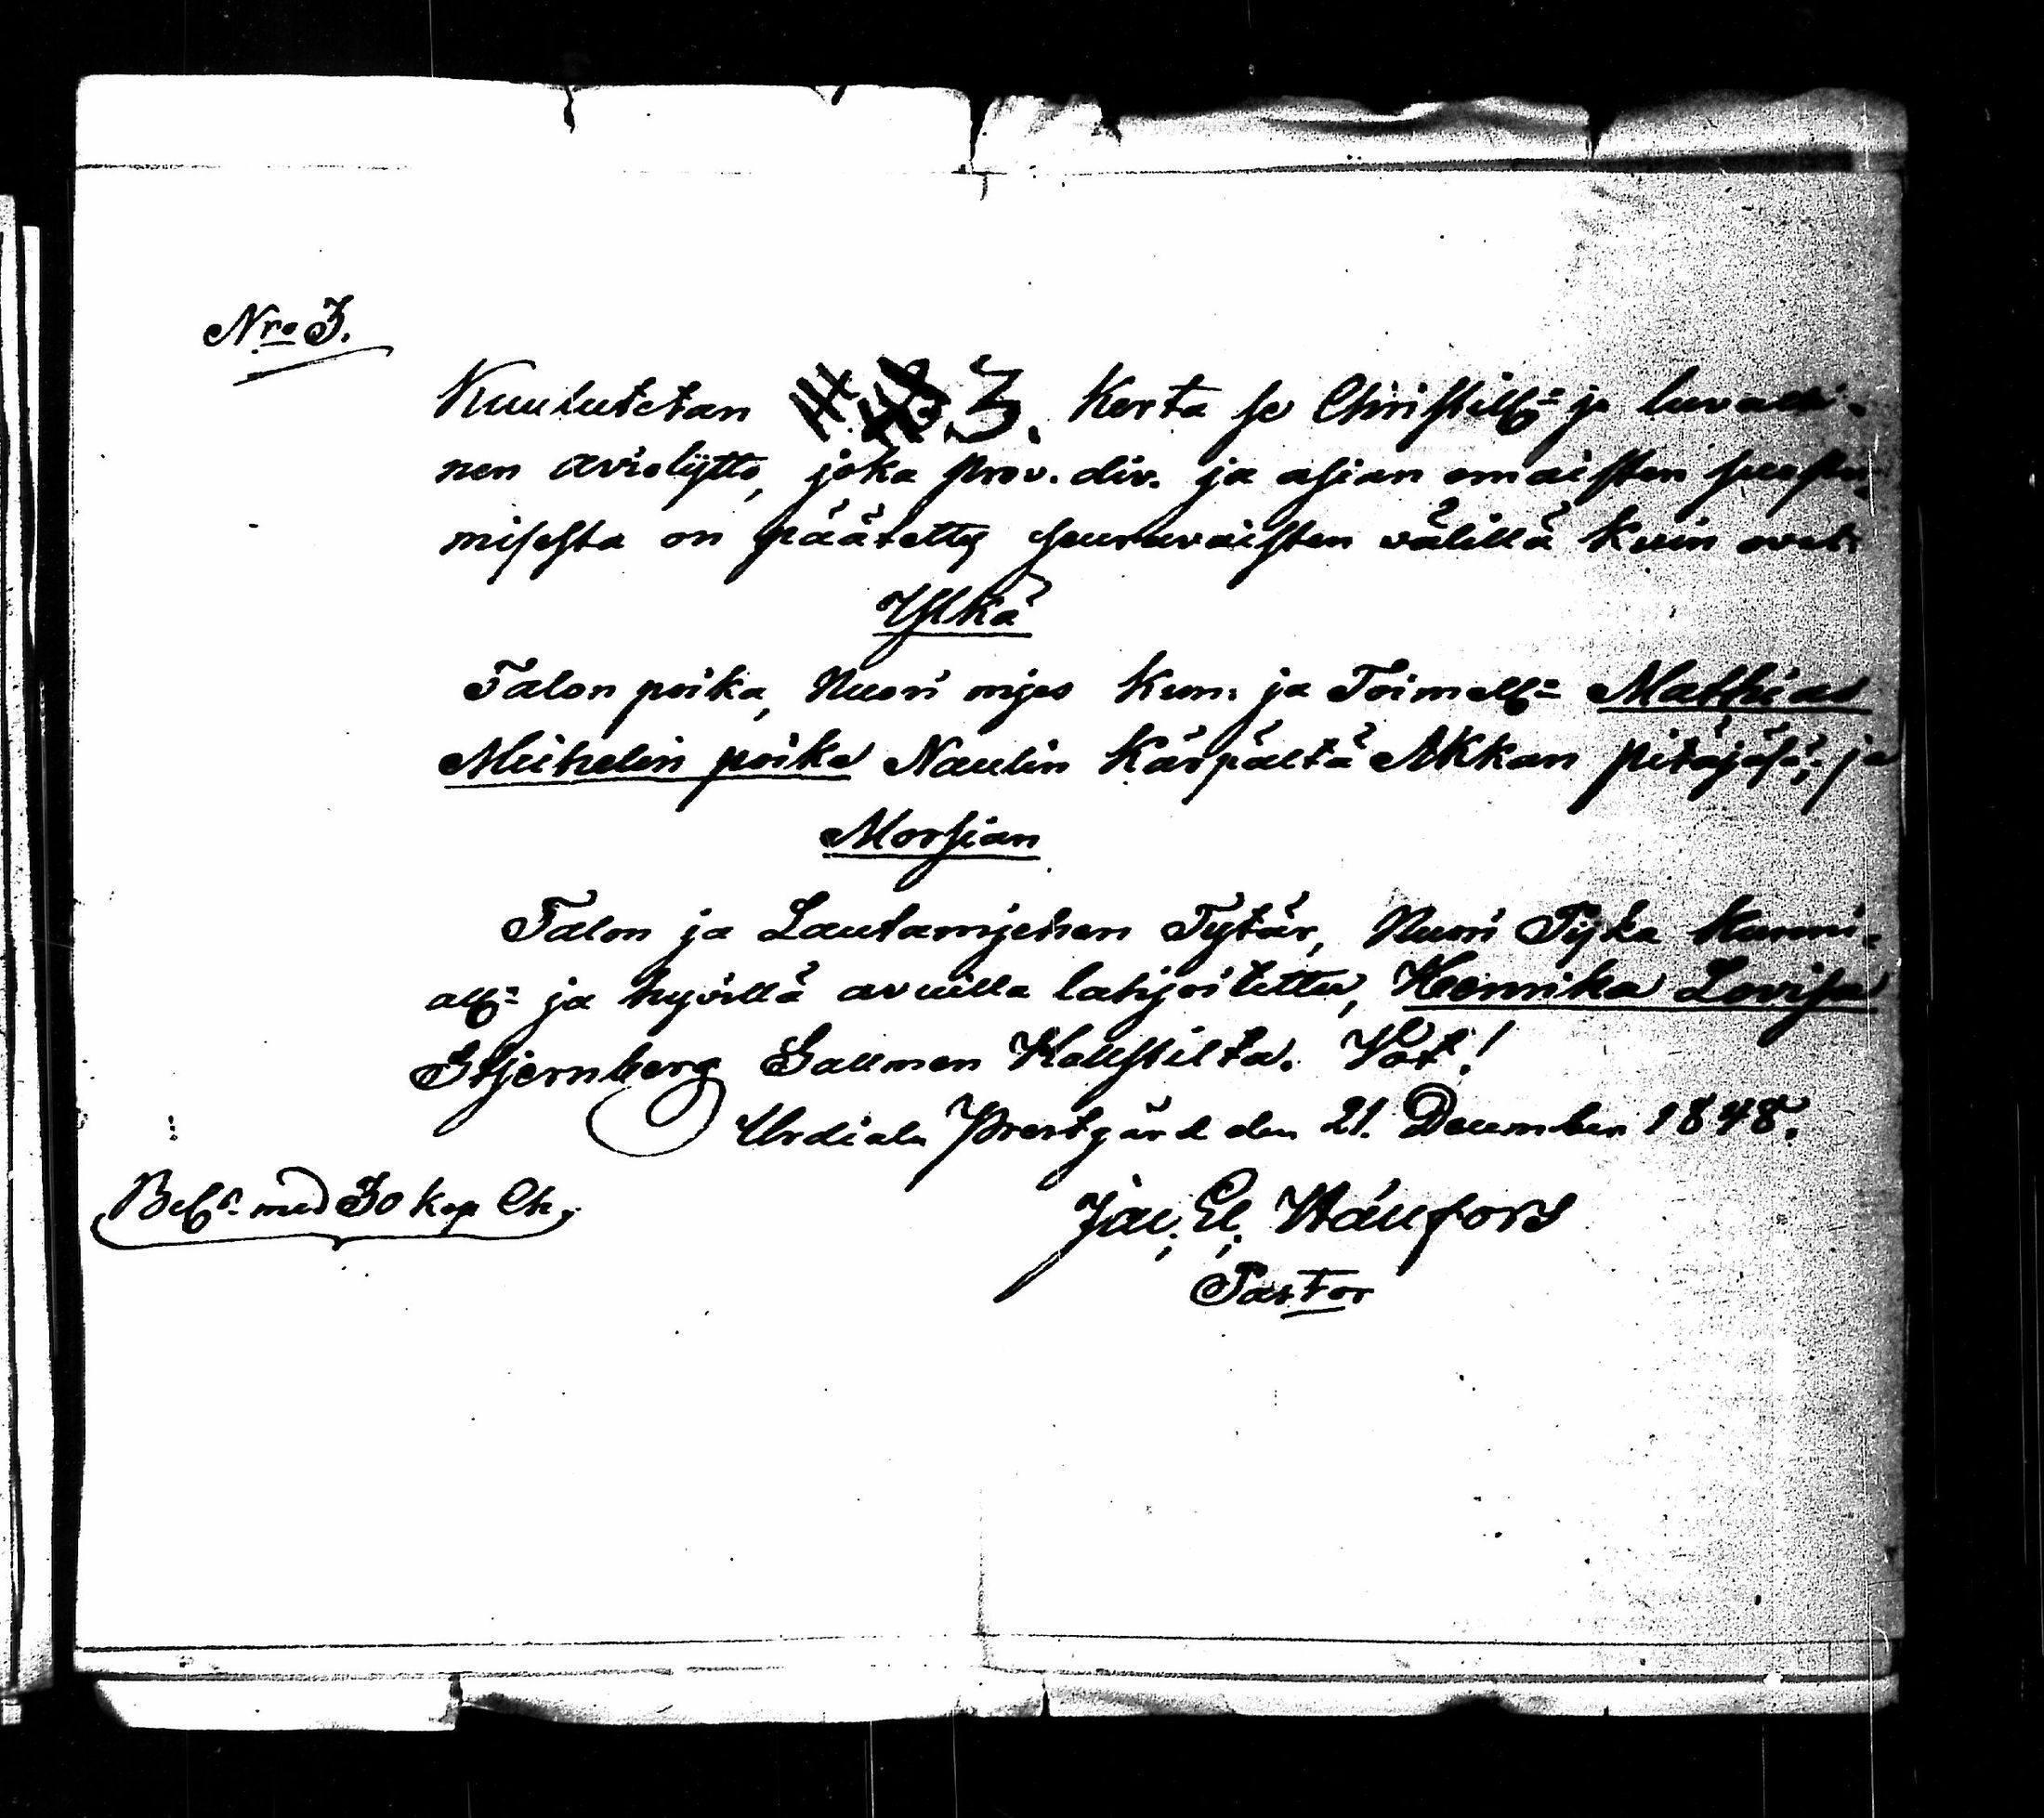 Nro 3.
Kuulutetan 3. Kerta se Christill: ja luvalli-
nen avioliytto, joka prov. div. ja asian omaisten suostu-
misesta on päätetty seuravaisten välillä kuin ovat:
Yljkä
Talon poika, Nuori mjes Kun: ja Toimell: Mathias
Michelin poika Naulin Kärpältä Akkan pitäjäsä; ja
Morsian
Talon ja Lautamjehen Tytär, Nuori Pijka Kunni-
all: ja hyvillä avuilla lahjoitettu, Henrika Lovisa
Stjernberg Salmen Kallsilta. Vot!
Urdiala Prestgård den 21. December 1848.
Bet. med 30 kop
Jac. El.
Pastor